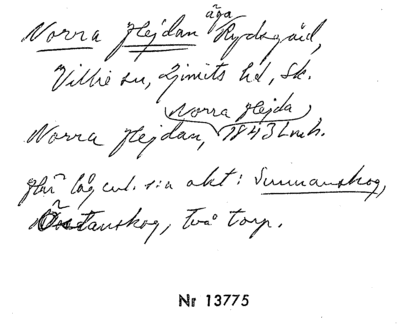 äga
Norra Hejdan Rydsgård,
Villie sn, Ljunits hd, Sk.
Norra Hejda
Norra Hejdan, 1843 Lmh.
Här låg enl. s:a akt: Sunnanskog,
Östanskog, två torp.
Nr 13775